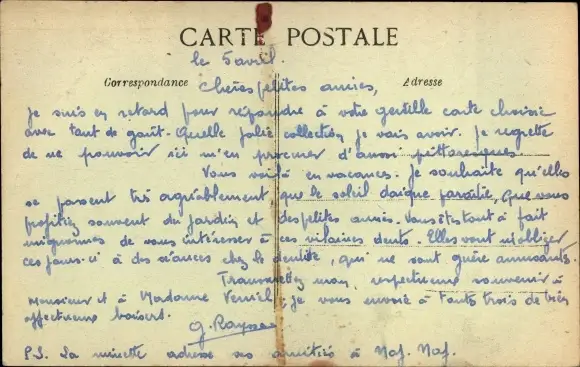 CARTE POSTALE
le 5 avril.
Correspondance
Adresse
Chères petites amies,
Je suis en retard pour répondre à votre gentille carte choisie
avec tant de goût. Quelle jolie collection je vais avoir. Je regrette
de ne pouvoir ici m'en procurer d'aussi pittoresques
Vous voilà en vacances. Je souhaite qu'elles
se passent très agréablement que le soleil daigne paraître, que vous
profitiez souvent du jardin et des petites amies. Vous êtes tout à fait
mignonnes de vous intéresser à ces vilaines dents. Elles vont m'obliger
ces jours-ci à des séances chez le dentiste, qui ne sont guère amusantes.
Transmettez mon respectueux souvenir à
Monsieur et à Madame ; je vous envoie à toutes trois de bien
affectueux baisers.
P.S. La minette adresse ses amitiés à Naf. Naf.